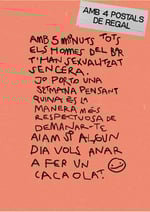 AMB 4 POSTALS
DE REGAL
AMB 5 MINUTS TOTS
ELS HOMES DEL BAR
T'HAN SEXUALITZAT
SENCERA.
JO PORTO UNA
SETMANA PENSANT
QUINA ÉS LA
MANERA MÉS
RESPETUOSA DE
DEMANAR-TE
AIAM SI ALGUN
DIA VOLS ANAR
A FER UN
CACAOLAT.